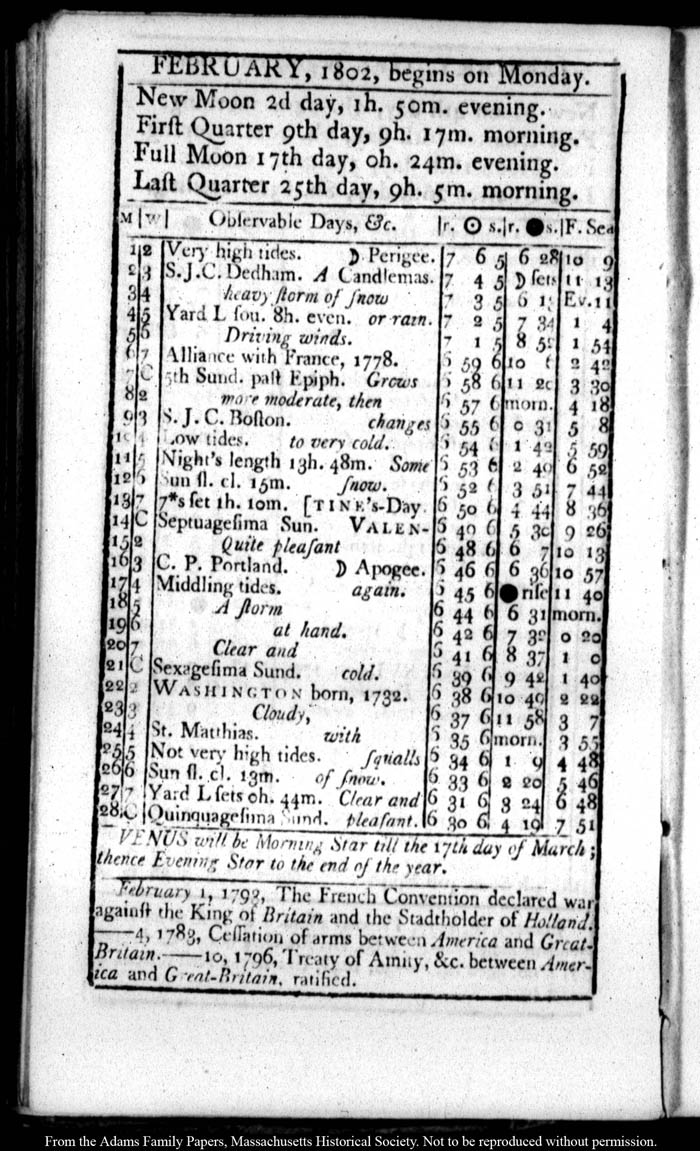 FEBRUARY, 1802, begins on Monday.
New Moon 2d day, 1h. 50m. evening.
Firſt Quarter 9th day, 9h. 17m. morning.
Full Moon 17th day, 0h. 24m. evening.
Laſt Quarter 25th day, 9h. 5m. morning.
M|W| Obſervable Days, &c. |r. ☉ s.|r. ●s.|F. Sea
1 2 Very high tides. ☽ Perigee. 7 6 5 6 28 10 9
2 3 S.J.C. Dedham. A Candlemas. 7 4 5 ☽ ſets 11 13
3 4 heavy ſtorm of ſnow 7 3 5 6 Ev. 11
4 5 Yard L ſou. 8h. even. or rain. 7 2 5 7 34 1 4
5 6 Driving winds. 7 1 5 8 1 54
6 7 Alliance with France, 1778. 6 59 6 10 2 42
7 C 5th Sund. paſt Epiph. Grows 6 58 6 11 20 3 30
8 2 more moderate, then 6 57 6 morn. 4 18
9 3 S. J. C. Boſton. changes 6 55 6 0 31 5 8
10 4 Low tides. to very cold. 6 54 6 1 42 5 59
11 5 Night's length 13h. 48m. Some 6 53 6 2 49 6 52
12 6 Sun ſl. cl. 15m. ſnow. 6 52 6 3 51 7 44
13 7 7*s ſet 1h. 10m. [TINE's-Day. 6 50 6 4 44 8 36
14 C Septuageſima Sun. VALEN- 6 49 6 5 30 9 26
15 2 Quite pleaſant 6 48 6 6 7 10 13
16 3 C. P. Portland. ☽ Apogee. 6 46 6 6 36 10 57
17 4 Middling tides. again. 6 45 6 ● riſe 11 40
18 5 A ſtorm 6 44 6 6 31 morn.
19 6 at hand. 6 42 6 7 32 0 20
20 7 Clear and 6 41 6 8 37 1 0
21 C Sexageſima Sund. cold. 6 39 6 9 42 1 40
22 2 WASHINGTON born, 1732. 6 38 6 10 49 2 22
23 3 Cloudy, 6 37 6 11 58 3 7
24 4 St. Matthias. with 6 35 6 morn. 3 55
25 5 Not very high tides. ſqualls 6 34 6 1 9 4 48
26 6 Sun ſl. cl. 13m. of ſnow. 6 33 6 2 20 5 46
27 7 Yard L ſets 0h. 44m. Clear and 6 31 6 3 24 6 48
28 C Quinquageſima Sund. pleaſant. 6 30 6 4 19 7 51
VENUS will be Morning Star till the 17th day of March;
thence Evening Star to the end of the year.
February 1, 1793, The French Convention declared war
againſt the King of Britain and the Stadtholder of Holland.
——4, 1783, Ceſſation of arms between America and Great-
Britain.——10, 1796, Treaty of Amity, &c. between Amer-
ica and Great-Britain, ratified.
From the Adams Family Papers, Massachusetts Historical Society. Not to be reproduced without permission.